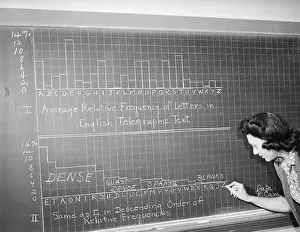 14%
12
10
8
6
4
2
0
ABCDEFGHIJKLMNOPQRSTUVWXYZ
I Average Relative Frequency of Letters in
English Telegraphic Text
14%
12
10
8
6
4
2
0
DENSE
QUASI DENSE
SPARSE
BLANKS
II Same as I in Descending Order of
Relative Frequencies
Data